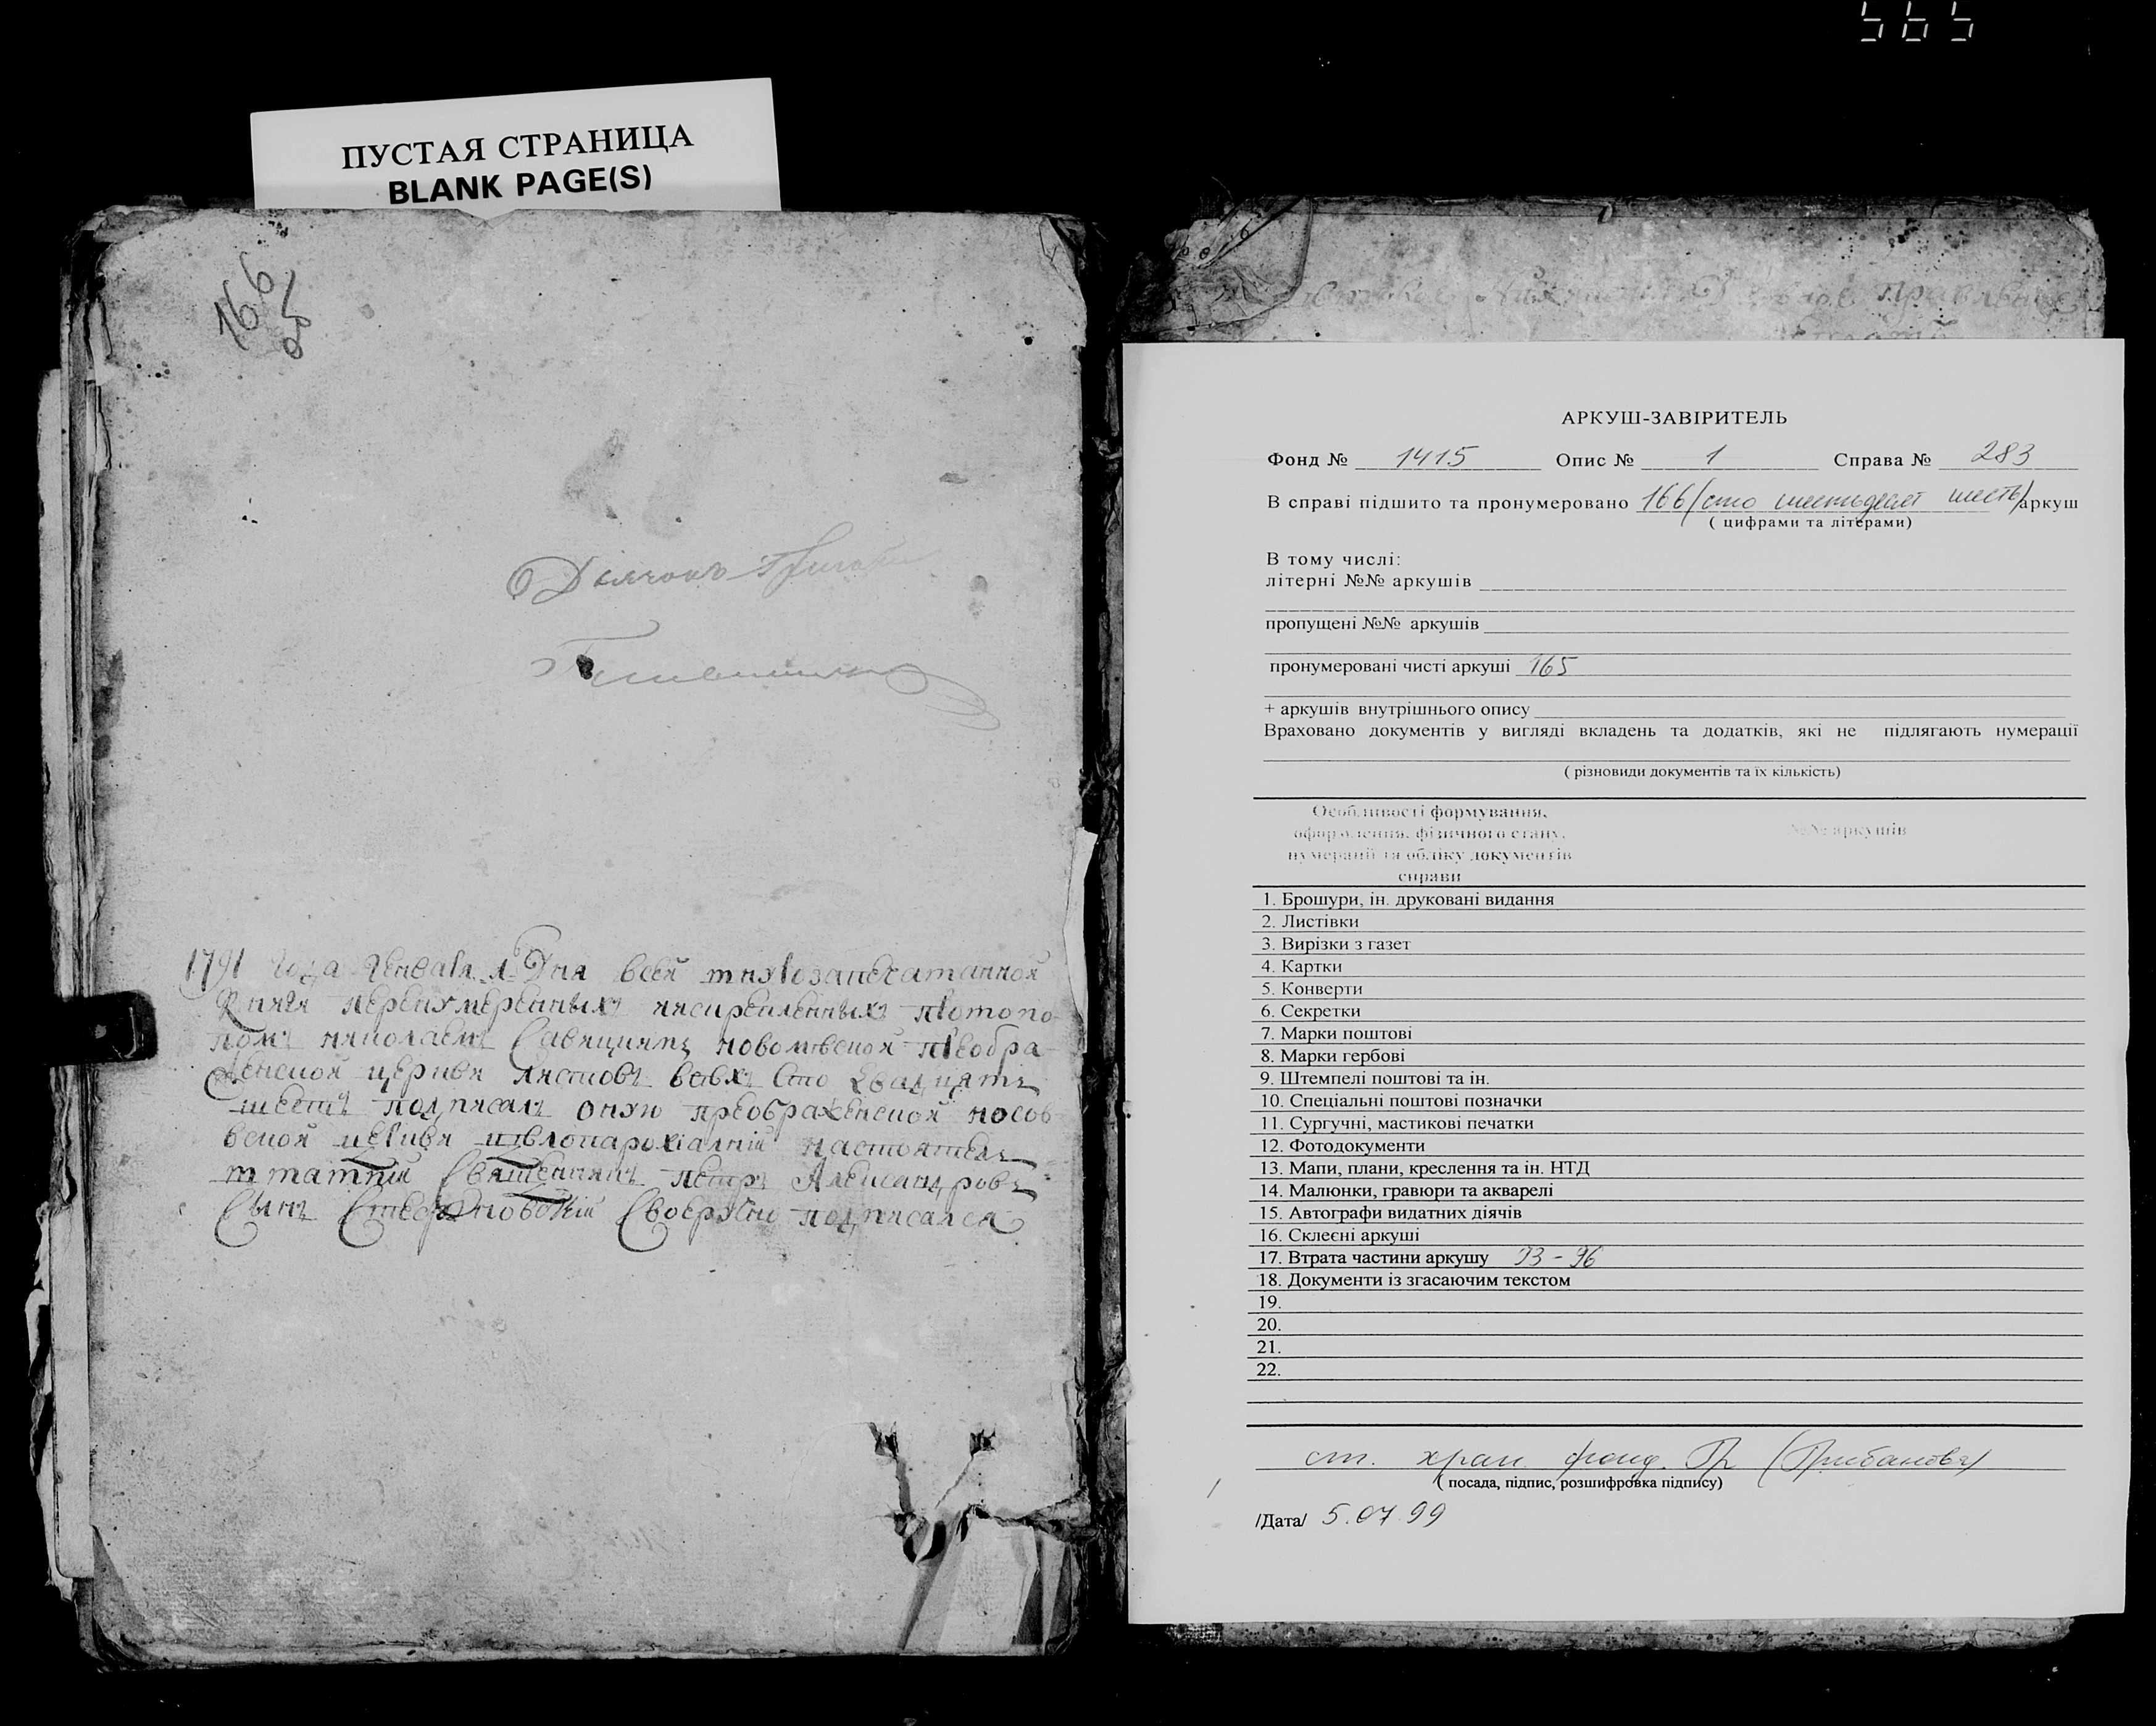 565
ПУСТАЯ СТРАНИЦА
BLANK PAGE(S)
166
об
Дьячокъ
1791 года Генваря Дня всей шнурозапечатанной
Книги перенумеренныхъ искрепленныхъ протопо-
помъ николаемъ Савицкимъ преобра
женской церкви листовъ всѣхъ Сто двадцать
шесть подписалъ оную преображенской носов
вской церкви настоятель
штатній Священникъ петръ Александровъ
Сынъ Стефановскій Своеручно подписался
АРКУШ-ЗАВІРИТЕЛЬ
Фонд № 1415 Опис № 1 Справа № 283
В справі підшито та пронумеровано 166 (сто шестьдесят шесть) аркуш
( цифрами та літерами)
В тому числі:
літерні №№ аркушів
пропущені №№ аркушів
пронумеровані чисті аркуші 165
+ аркушів внутрішнього опису
Враховано документів у вигляді вкладень та додатків, які не підлягають нумерації
( різновиди документів та їх кількість)
Особливості формування,
оформлення, фізичного стану,
нумерації та обліку документів
справи
№№ аркушів
1. Брошури, ін. друковані видання
2. Листівки
3. Вирізки з газет
4. Картки
5. Конверти
6. Секретки
7. Марки поштові
8. Марки гербові
9. Штемпелі поштові та ін.
10. Спеціальні поштові позначки
11. Сургучні, мастикові печатки
12. Фотодокументи
13. Мапи, плани, креслення та ін. НТД
14. Малюнки, гравюри та акварелі
15. Автографи видатних діячів
16. Склеєні аркуші
17. Втрата частини аркушу 93 - 96
18. Документи із згасаючим текстом
19.
20.
21.
22.
ст. хран. фонд.
( посада, підпис, розшифровка підпису)
/Дата/ 5.07.99